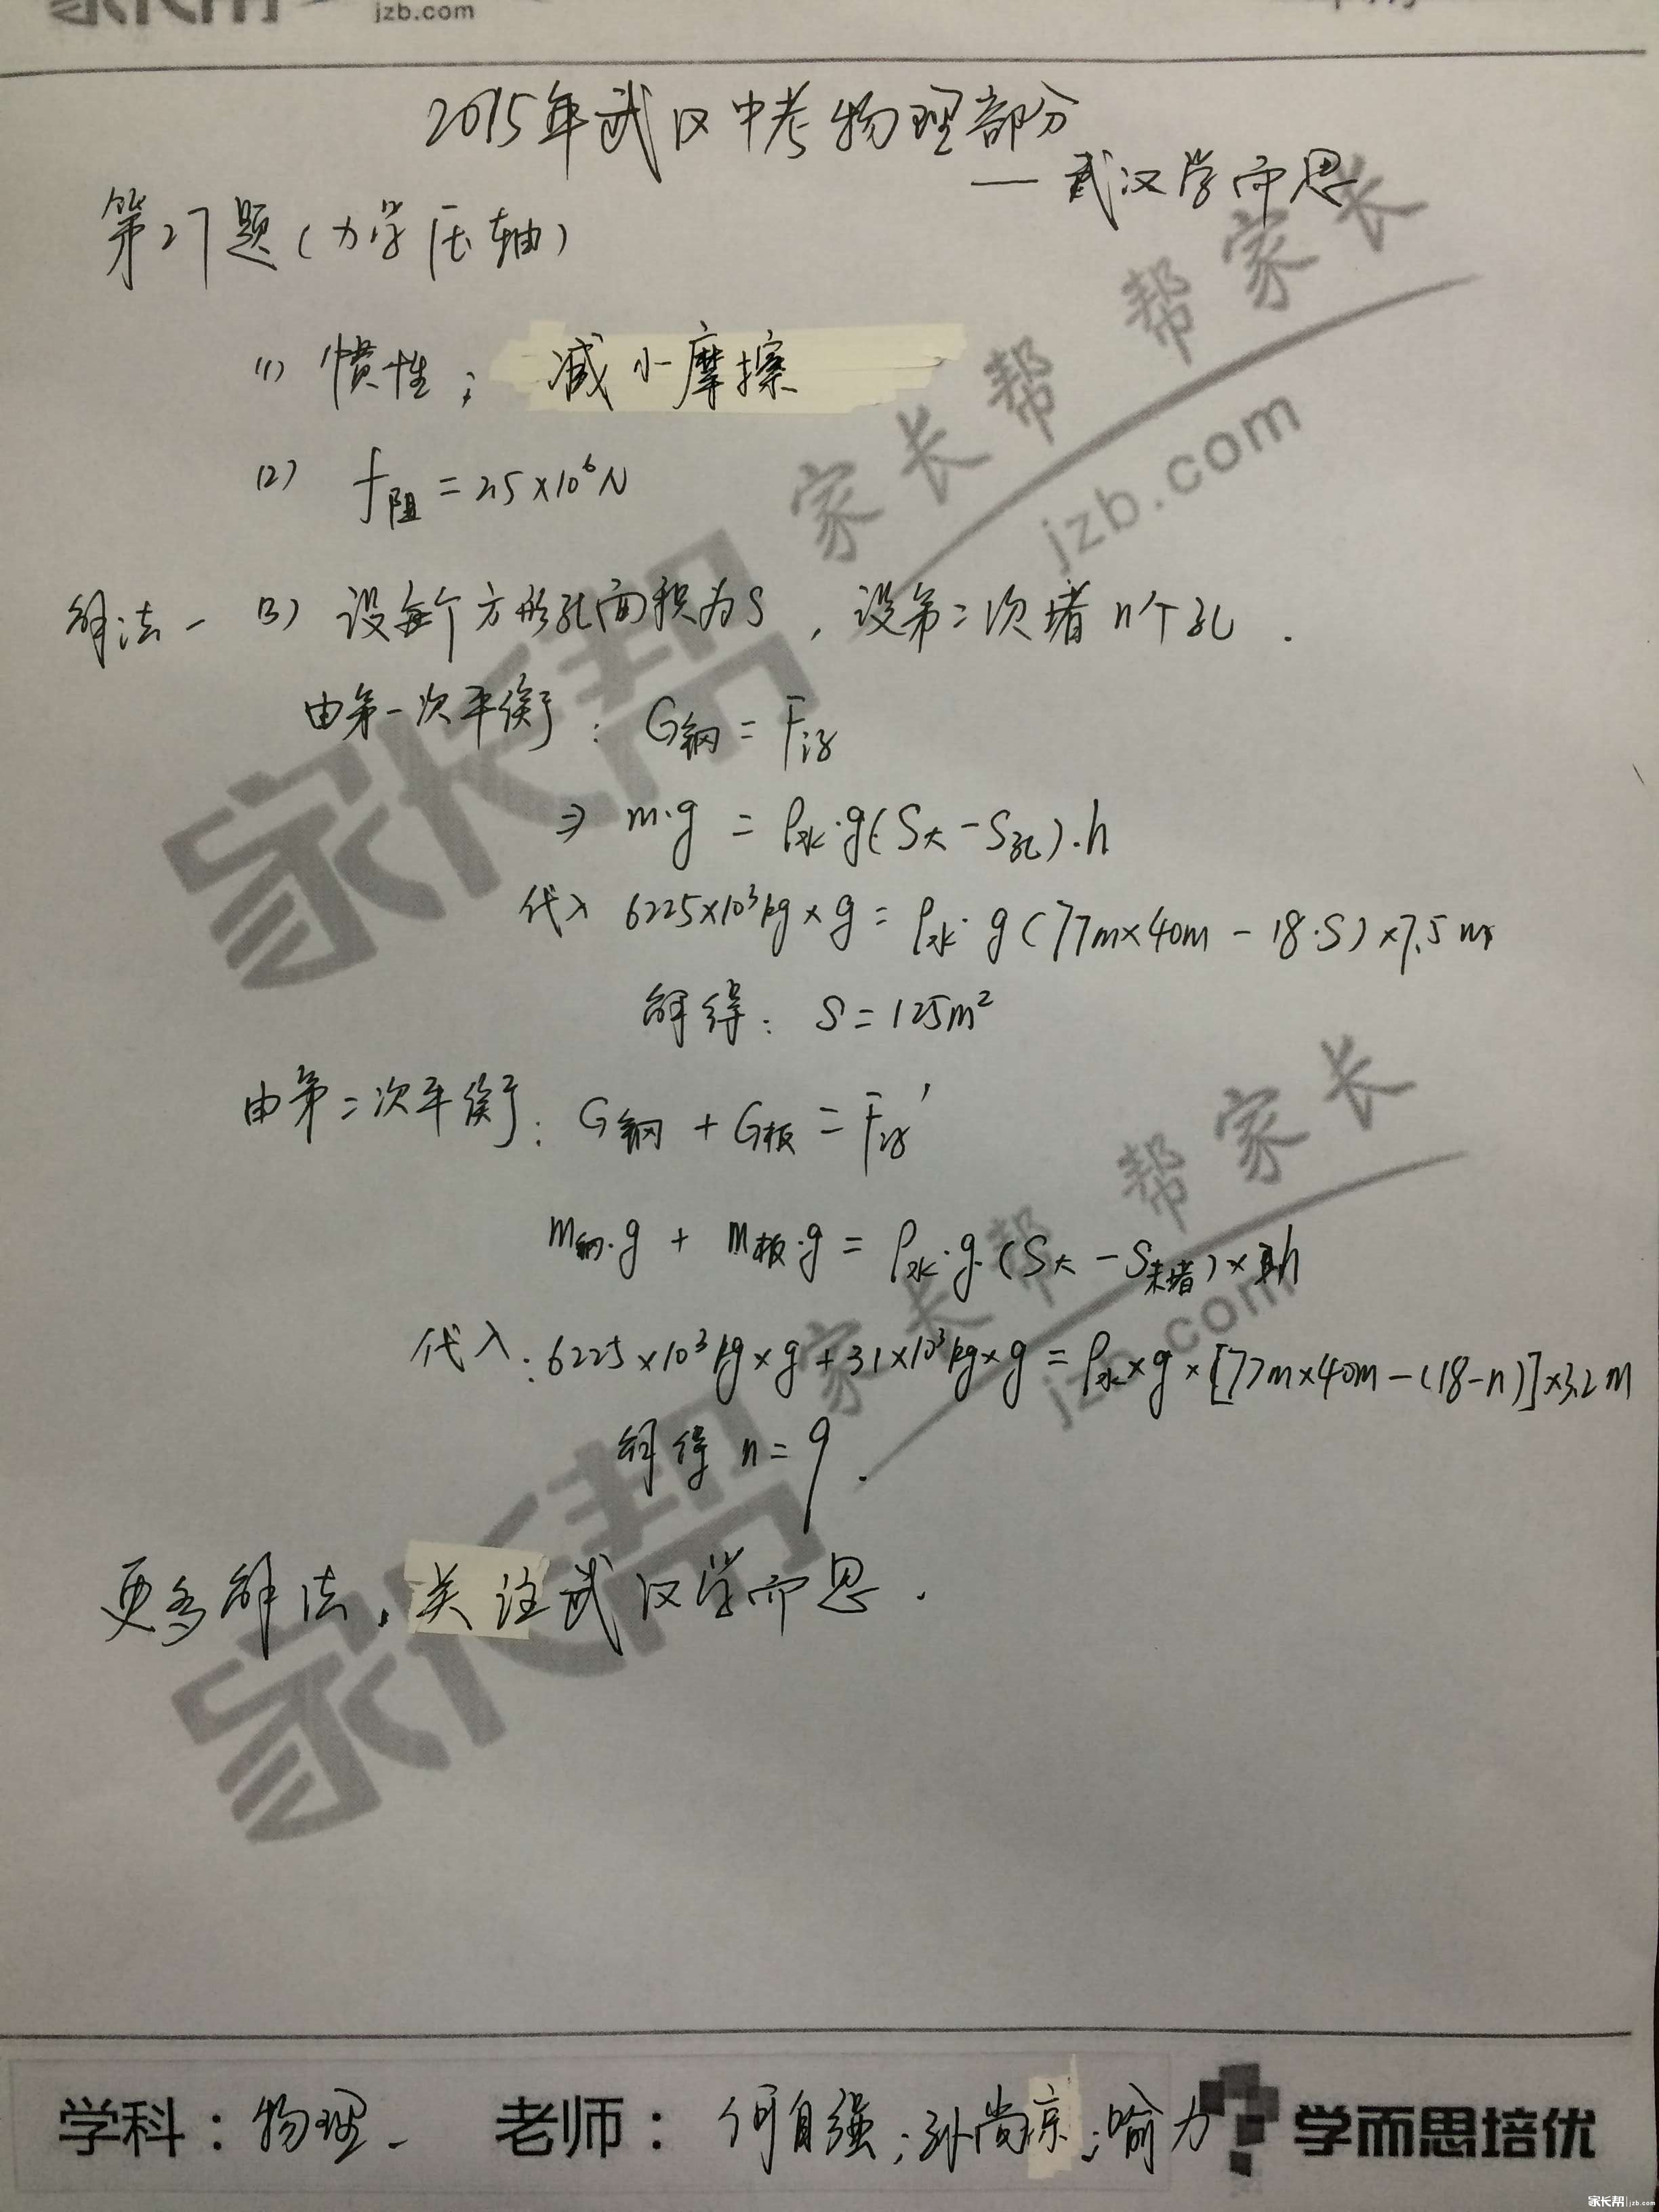 jzb.com
2015年武汉中考物理部分
— 武汉学而思
第27题(力学压轴)
(1) 惯性; 减小摩擦
(2) f阻 = 2.5×10⁶N
解法一 (3) 设每个方形孔面积为S, 设第二次堵n个孔.
由第一次平衡: G钢 = F浮
⇒ m·g = ρ水·g(S大-S孔)·h
代入 6225×10³kg×g = ρ水·g(77m×40m-18·S)×7.5m
解得: S=125m²
由第二次平衡: G钢 + G板 = F浮'
m钢·g + m板·g = ρ水·g·(S大-S未堵)×h
代入: 6225×10³kg×g+31×10³kg×g = ρ水×g×[77m×40m-(18-n)]×3.2m
解得 n=9.
更多解法, 关注武汉学而思.
家长帮 家长帮 家长
jzb.com
家长帮 家长帮 家长
jzb.com
学科: 物理 老师: 何自强; 孙尚琼; 喻力 学而思培优
家长帮 jzb.com